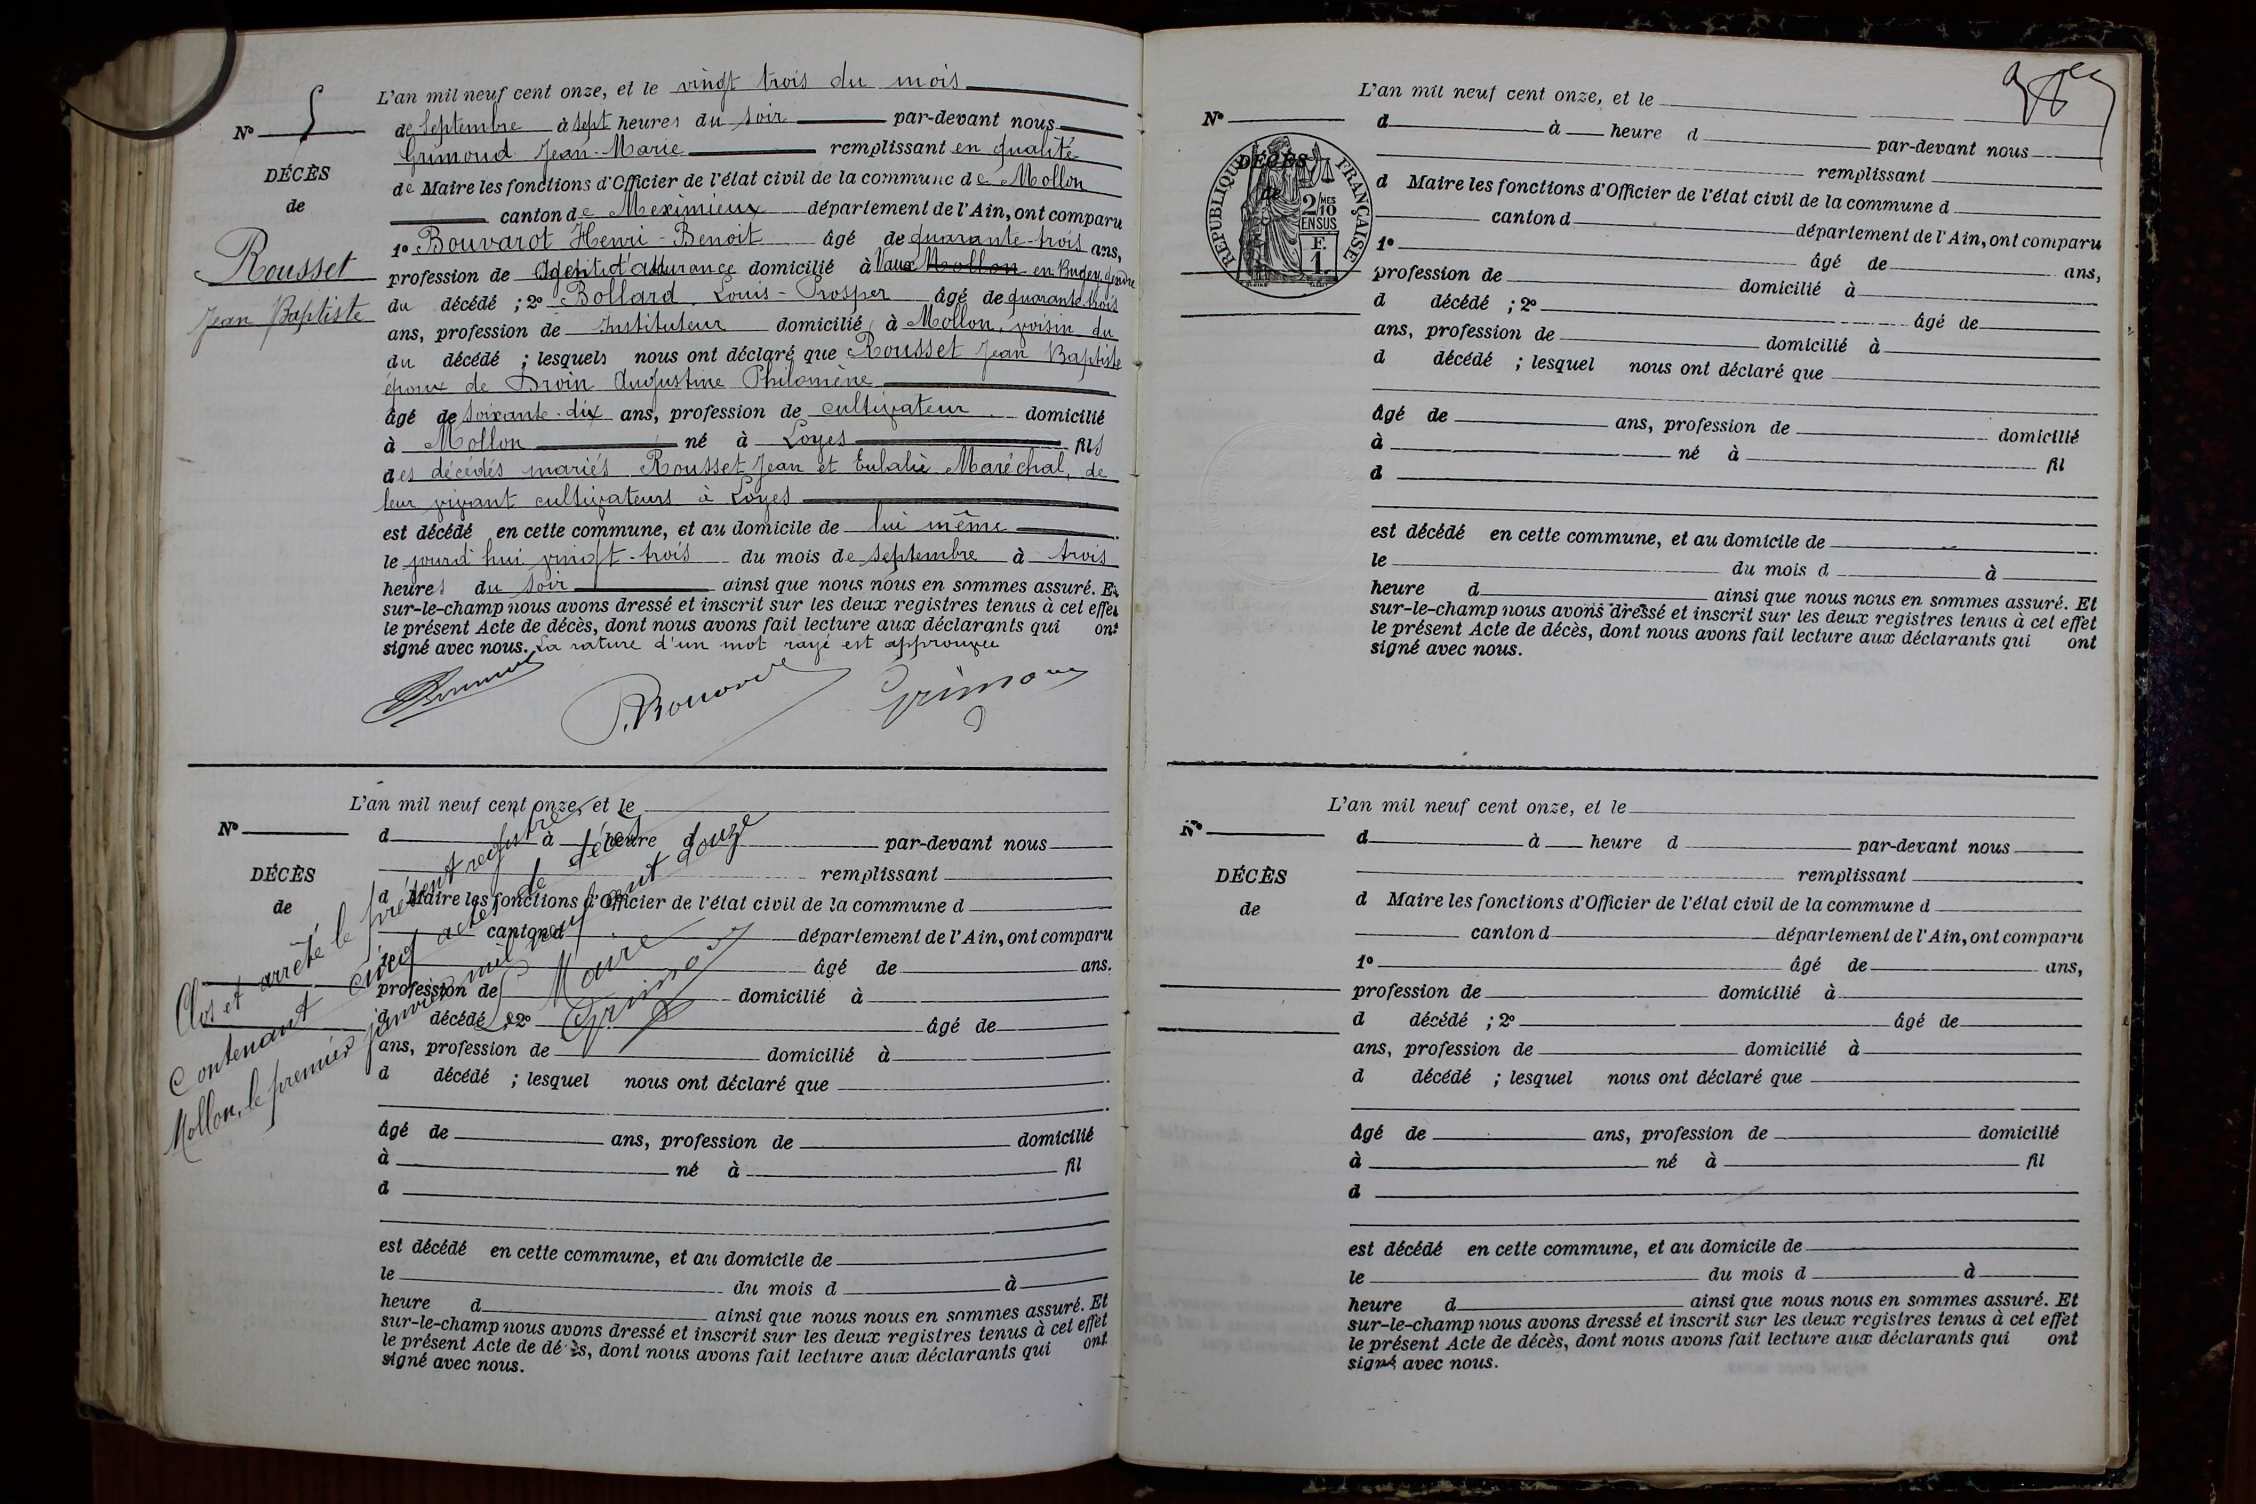 N° 5
DÉCÈS
de
Rousset
Jean Baptiste
L'an mil neuf cent onze, et le vingt trois du mois
de septembre à sept heures du soir par-devant nous
Grimoud Jean-Marie remplissant en qualité
de Maire les fonctions d'Officier de l'état civil de la commune de Mollon
canton de Meximieux département de l'Ain, ont comparu
1° Bouvarot Henri-Benoit âgé de quarante-trois ans,
profession de Agent d'assurance domicilié à Vaux Mollon en Bugey, gendre
du décédé ; 2° Bollard Louis-Prosper âgé de quarante trois
ans, profession de Instituteur domicilié à Mollon, voisin du
du décédé ; lesquels nous ont déclaré que Rousset Jean Baptiste
époux de Droin Augustine Philomène
âgé de soixante-dix ans, profession de cultivateur domicilié
à Mollon né à Loyes fils
des décédés mariés Rousset Jean et Eulalie Maréchal, de
leur vivant cultivateurs à Loyes
est décédé en cette commune, et au domicile de lui même
le jourd'hui vingt-trois du mois de septembre à trois
heures du soir ainsi que nous nous en sommes assuré. Et
sur-le-champ nous avons dressé et inscrit sur les deux registres tenus à cet effet
le présent Acte de décès, dont nous avons fait lecture aux déclarants qui ont
signé avec nous. La rature d'un mot rayé est approuvée
Grimoud
N°
DÉCÈS
de
L'an mil neuf cent onze, et le
d à heure d par-devant nous
remplissant
d Maire les fonctions d'Officier de l'état civil de la commune d
canton d département de l'Ain, ont comparu
1° âgé de ans.
profession de domicilié à
d décédé ; 2° âgé de
ans, profession de domicilié à
d décédé ; lesquel nous ont déclaré que
âgé de ans, profession de domicilié
à né à fil
d
est décédé en cette commune, et au domicile de
le du mois d à
heure d ainsi que nous nous en sommes assuré. Et
sur-le-champ nous avons dressé et inscrit sur les deux registres tenus à cet effet
le présent Acte de décès, dont nous avons fait lecture aux déclarants qui ont
signé avec nous.
Clos et arrêté le présent registre
contenant cinq actes de décès
Mollon, le premier janvier mil neuf cent douze
Le Maire
Grimoud
N°
DÉCÈS
de
RÉPUBLIQUE FRANÇAISE
2/10 MES
EN SUS
F.
1.
L'an mil neuf cent onze, et le
d à heure d par-devant nous
remplissant
d Maire les fonctions d'Officier de l'état civil de la commune d
canton d département de l'Ain, ont comparu
1° âgé de ans,
profession de domicilié à
d décédé ; 2° âgé de
ans, profession de domicilié à
d décédé ; lesquel nous ont déclaré que
âgé de ans, profession de domicilié
à né à fil
d
est décédé en cette commune, et au domicile de
le du mois d à
heure d ainsi que nous nous en sommes assuré. Et
sur-le-champ nous avons dressé et inscrit sur les deux registres tenus à cet effet
le présent Acte de décès, dont nous avons fait lecture aux déclarants qui ont
signé avec nous.
N°
DÉCÈS
de
L'an mil neuf cent onze, et le
d à heure d par-devant nous
remplissant
d Maire les fonctions d'Officier de l'état civil de la commune d
canton d département de l'Ain, ont comparu
1° âgé de ans,
profession de domicilié à
d décédé ; 2° âgé de
ans, profession de domicilié à
d décédé ; lesquel nous ont déclaré que
âgé de ans, profession de domicilié
à né à fil
d
est décédé en cette commune, et au domicile de
le du mois d à
heure d ainsi que nous nous en sommes assuré. Et
sur-le-champ nous avons dressé et inscrit sur les deux registres tenus à cet effet
le présent Acte de décès, dont nous avons fait lecture aux déclarants qui ont
signé avec nous.